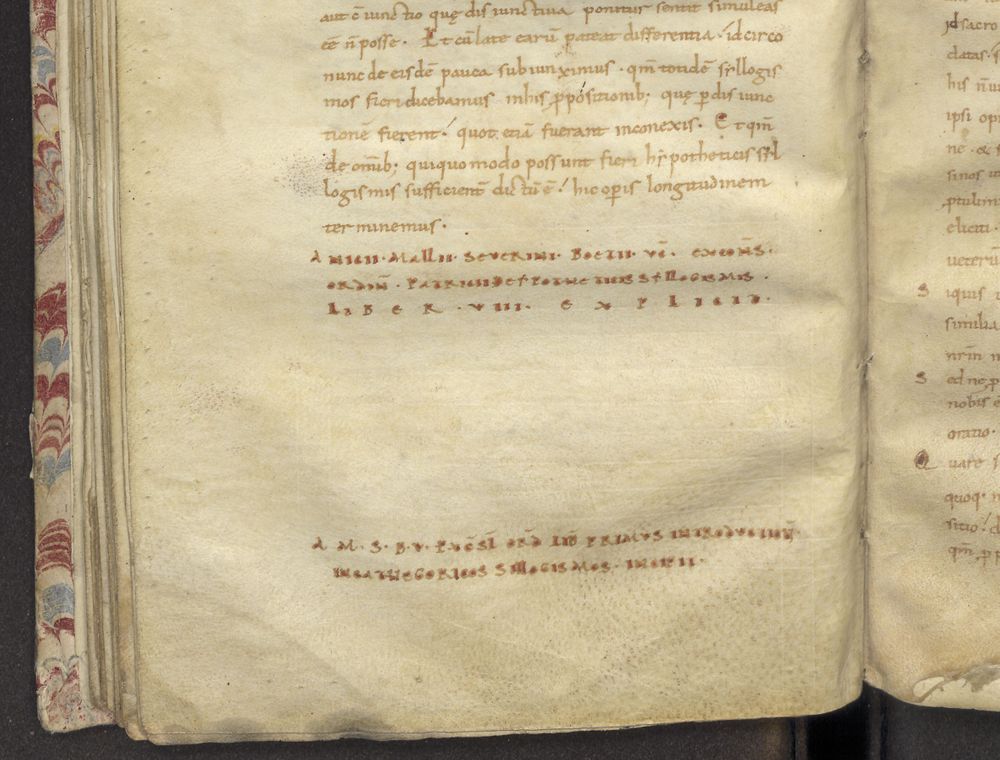 aut ē iunctio quę disiunctiua ponitur sentit simul eas
eē n̄ posse. Et cū late earū pateat differentia. idcirco
nunc de eisdē pauca subiunximus. qm̄ totidē syllogis
mos fieri dicebamus in his ꝓpositionib; quę ꝑ disiunc
tionē fierent. quot etiā fuerant in conexis. Et qm̄
de omīb; quiquo modo possunt fieri hypotheticis syl
logismis sufficienť dictū ē. hic oꝑis longitudinem
terminemus.
ANICII. MALLII. SEVERINI. BOETII. VĪ. EXCONS̄.
ORDIN̄. PATRICII DE YPOTHETICIS SYLLOGISMIS.
LIBER. VIII. EXPLICIT.
A. M. S. B. V. ORD̄ LIB̄ PRIMVS INTRODVCTION̄
IN CATHEGORICOS SILLOGISMOS. INCIPIT.
id sacro
datas. s
his n̄
ipsi opi
ne. &
sinos
eliciti.
ueterū
Siquis
simlia
nrīn
Sed ne ꝑ
nobis
oratio.
Quare s
quoq.
sitio.
qm̄